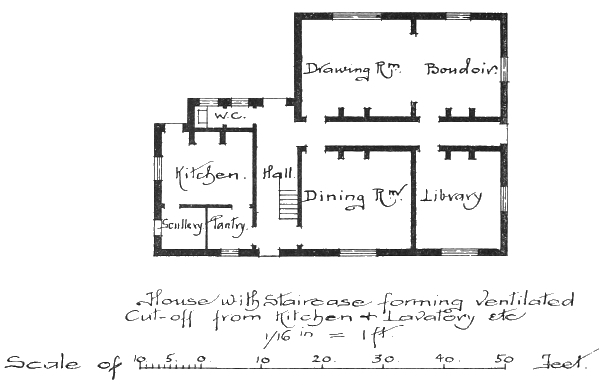 Drawing Rm. Boudoir.
W.C.
Kitchen. Hall.
Dining Rm. Library
Scullery. Pantry.
House with Staircase forming Ventilated
Cut-off from Kitchen & Lavatory etc
1/16 in = 1 ft.
Scale of 10 5. 0. 10. 20. 30. 40. 50 Feet.